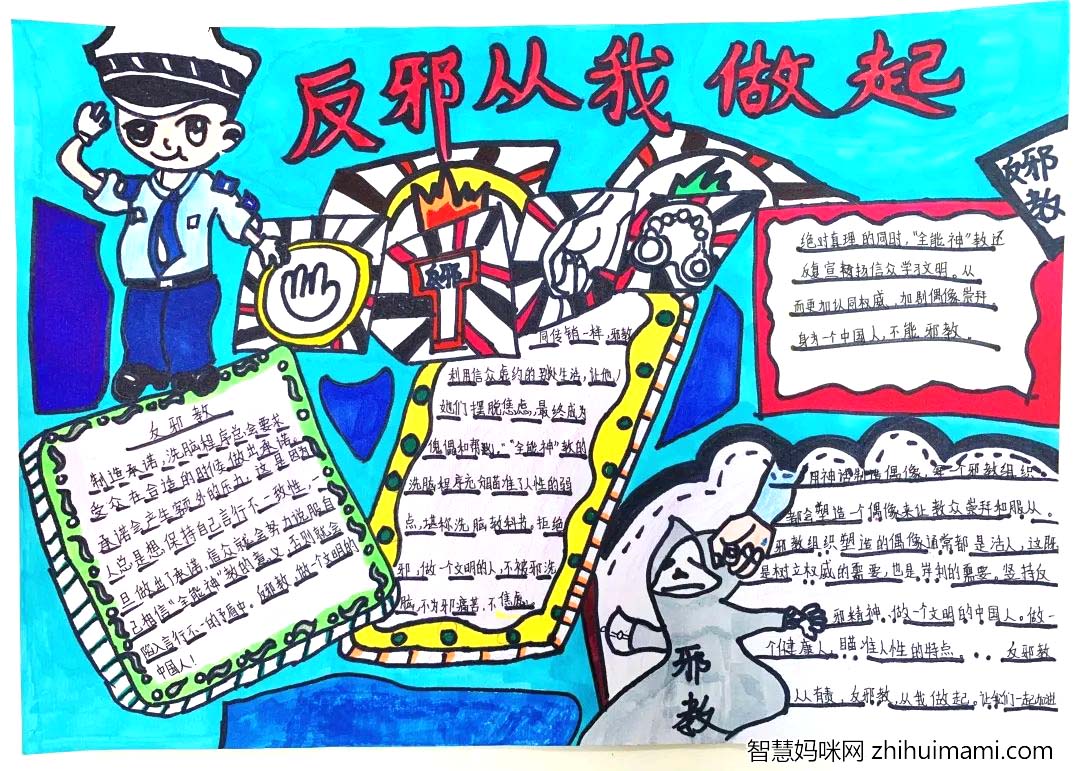 反邪从我做起
反邪教
反邪
绝对真理的同时，“全能神”教还
反复宣 扬信众学习文明。从
而更加认同权威，加剧偶像崇拜
身为一个中国人，不能邪教。
同传销一样，邪教
利用信众虚约的 生活，让他/
她们摆脱焦虑，最终成为
傀儡和帮凶，“全能神”教的
洗脑程序充 瞄准了人性的弱
点，堪称洗脑教科书，拒绝
邪，做一个文明的人，不被邪洗
脑，不为邪痛苦，不焦虑。
反邪教
制造承诺，洗脑程序总会要求
受众在合适的时候做出承诺，
承诺会产生额外的压力，这是因为
人总是想保持自己言行不一致性，一
旦做出了承诺，信众就会努力说服自
己相信“全能神”教的意义，否则就会
陷入言行不一的矛盾中。反邪教，做一个文明的
中国人！
用神话制造偶像，每一个邪教组织
都会塑造一个偶像来让教众崇拜和服从。
邪教组织塑造的偶像通常都是活人，这既
是树立权威的需要，也是 利的需要。坚持反
邪精神，做一个文明的中国人。做一
个健康人，瞄准人性的特点。..反邪教
人人有责，反邪教，从我做起。让我们一起加进
邪教
智慧妈咪网 zhihuimami.com